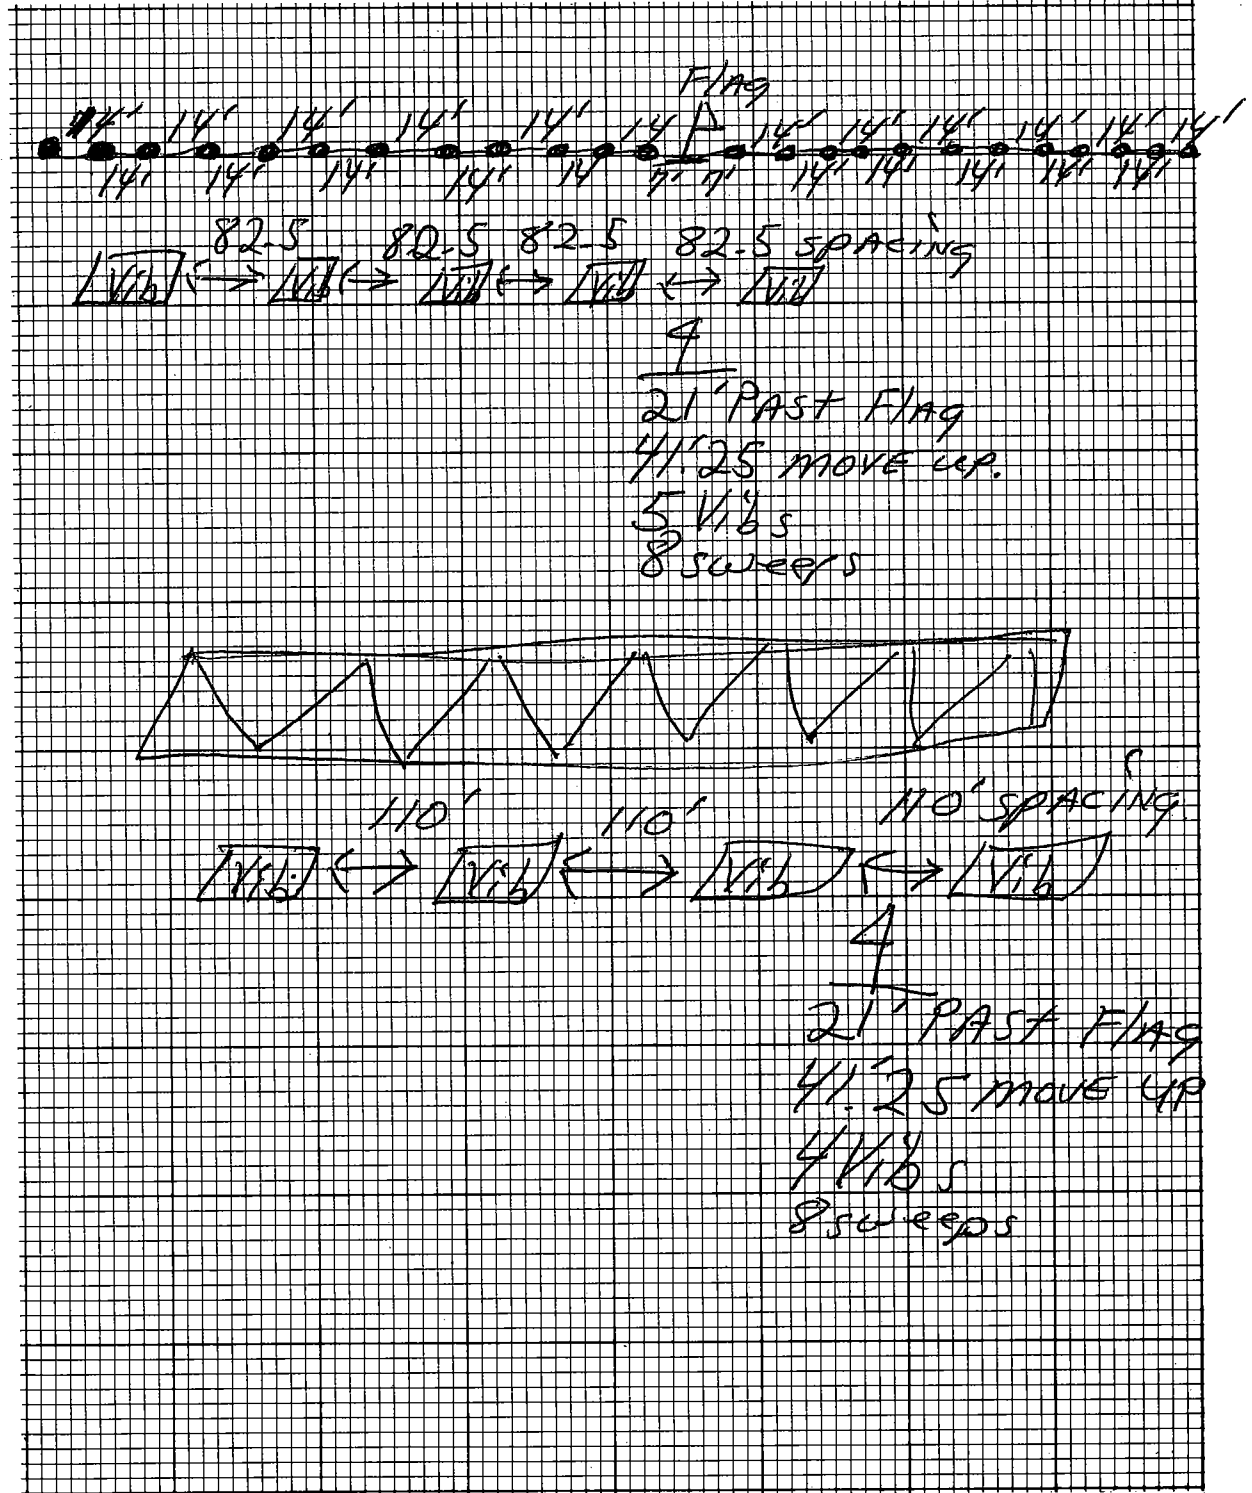 Flag
14' 14' 14' 14' 14' 14 14' 14' 14' 14' 14' 14'
14' 14' 14' 14' 14' 7' 7' 14' 14' 14' 14' 14'
82.5 82.5 82.5 82.5 spacing
Vib Vib Vib Vib Vib
4
21' Past Flag
41.'25 move up.
5 Vibs
8 sweeps
110' 110' 110' spacing
Vib. Vib Vib Vib
4
21' Past Flag
41.'25 move up
4 Vibs
8 sweeps